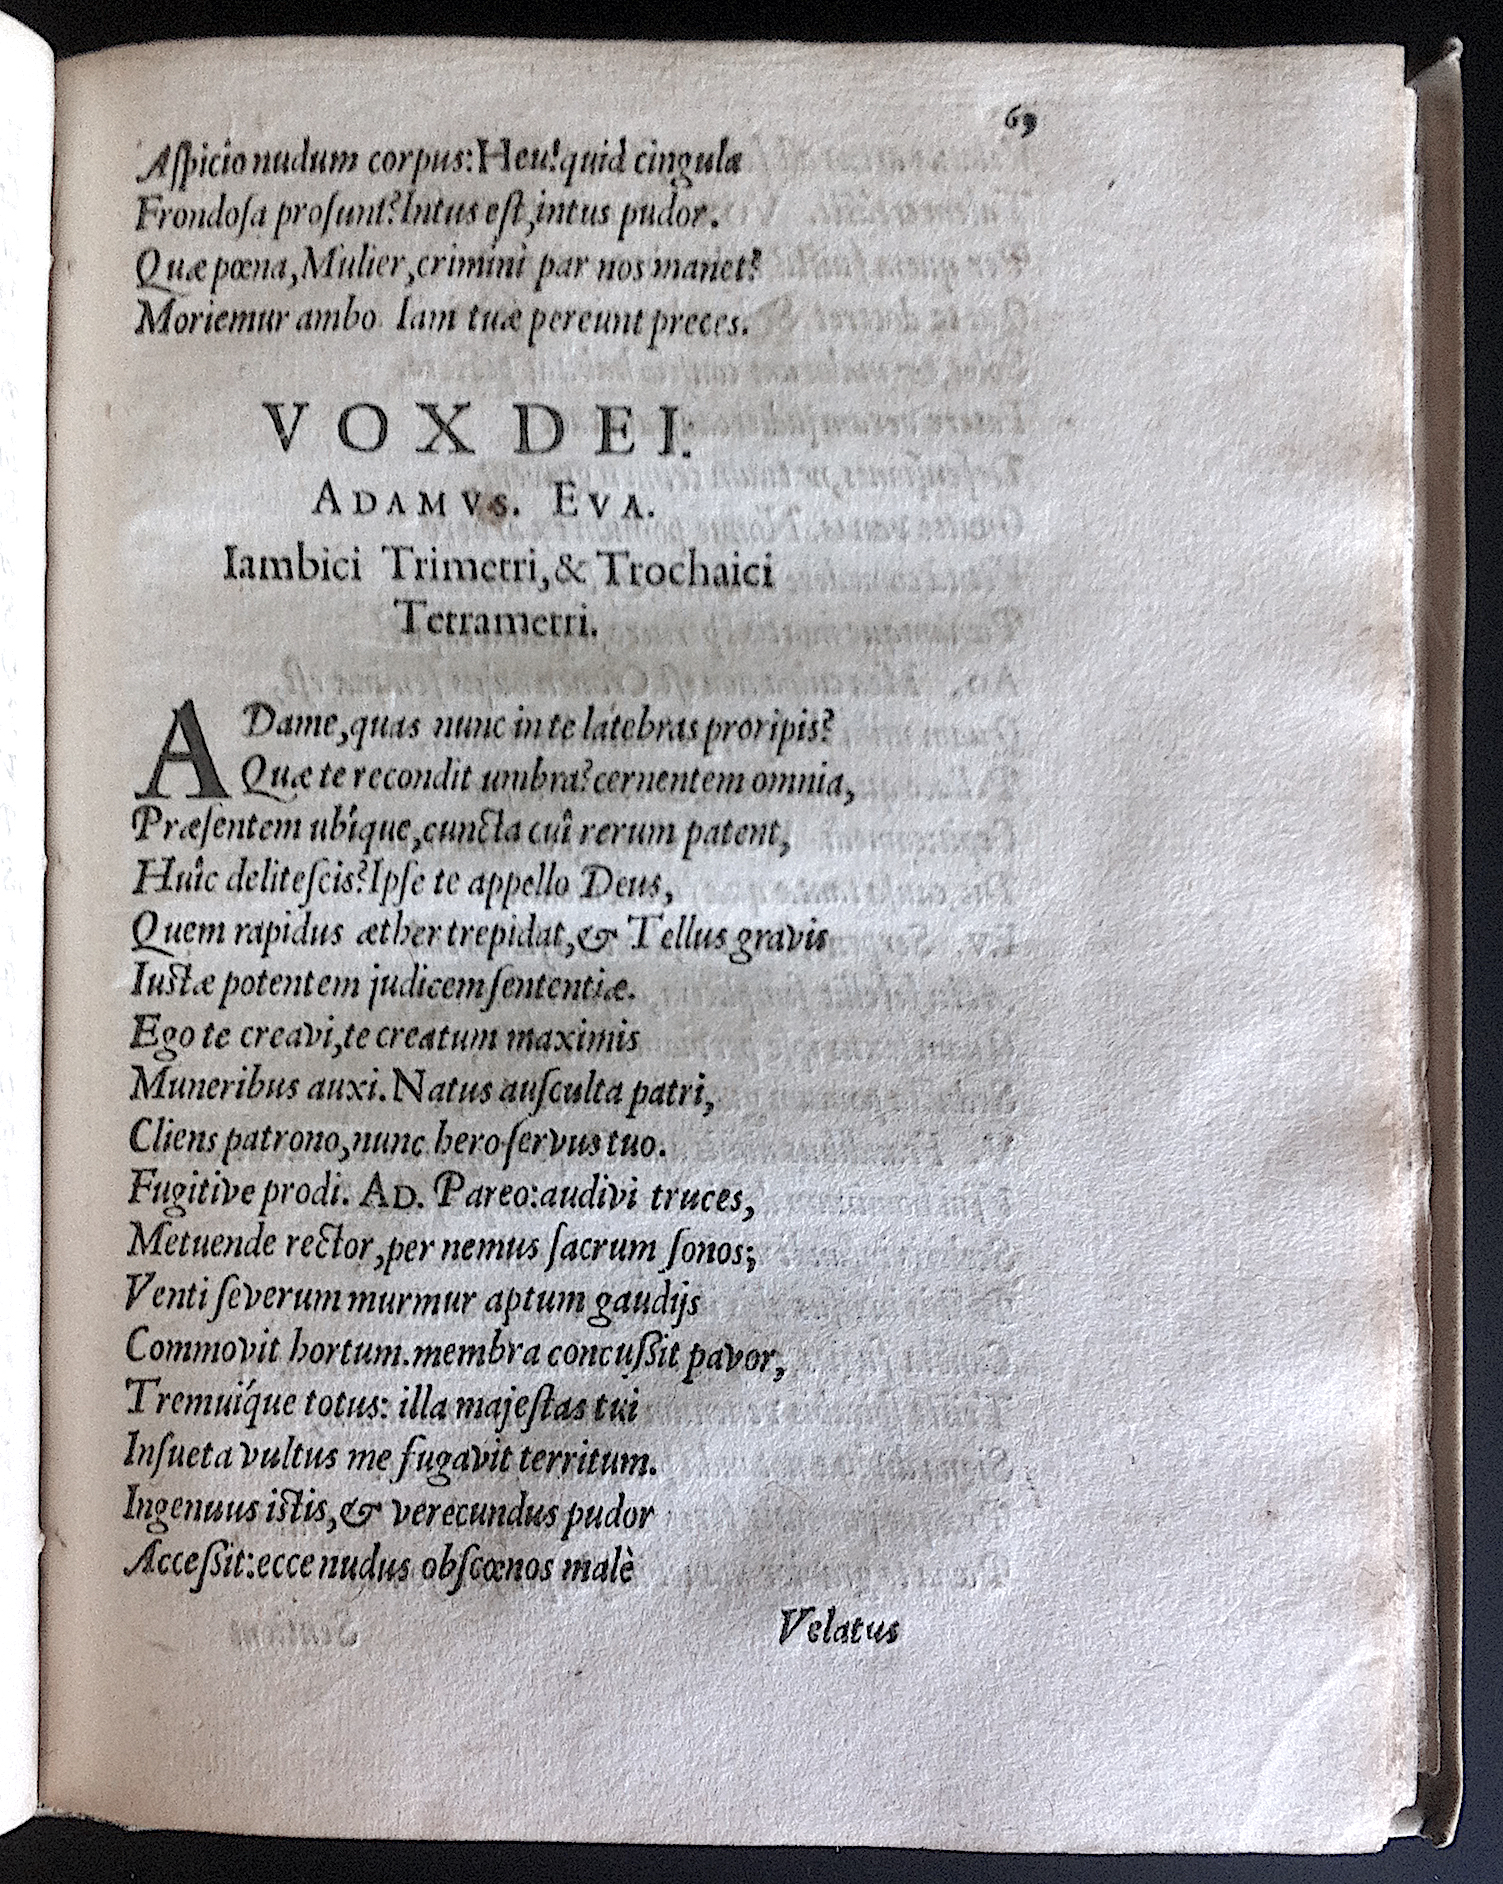 69
Aſpicio nudum corpus: Heu! quid cingula
Frondoſa proſunt? Intus eſt, intus pudor.
Quæ pœna, Mulier, crimini par nos manet?
Moriemur ambo. Iam tuæ pereunt preces.
VOX DEI.
ADAMVS. EVA.
Iambici Trimetri, & Trochaici
Tetrametri.
ADame, quas nunc in te latebras proripis?
Quæ te recondit umbra? cernentem omnia,
Præſentem ubíque, cuncta cuî rerum patent,
Huîc deliteſcis? Ipſe te appello Deus,
Quem rapidus æther trepidat, & Tellus gravis
Iustæ potentem judicem ſententiæ.
Ego te creavi, te creatum maximis
Muneribus auxi. Natus auſculta patri,
Cliens patrono, nunc hero ſervus tuo.
Fugitive prodi. AD. Pareo: audivi truces,
Metuende rector, per nemus ſacrum ſonos;
Venti ſeverum murmur aptum gaudijs
Commovit hortum. membra concuſſit pavor,
Tremuíque totus: illa majeſtas tui
Inſueta vultus me fugavit territum.
Ingenuus istis, & verecundus pudor
Acceſſit: ecce nudus obſcœnos malè
Velatus